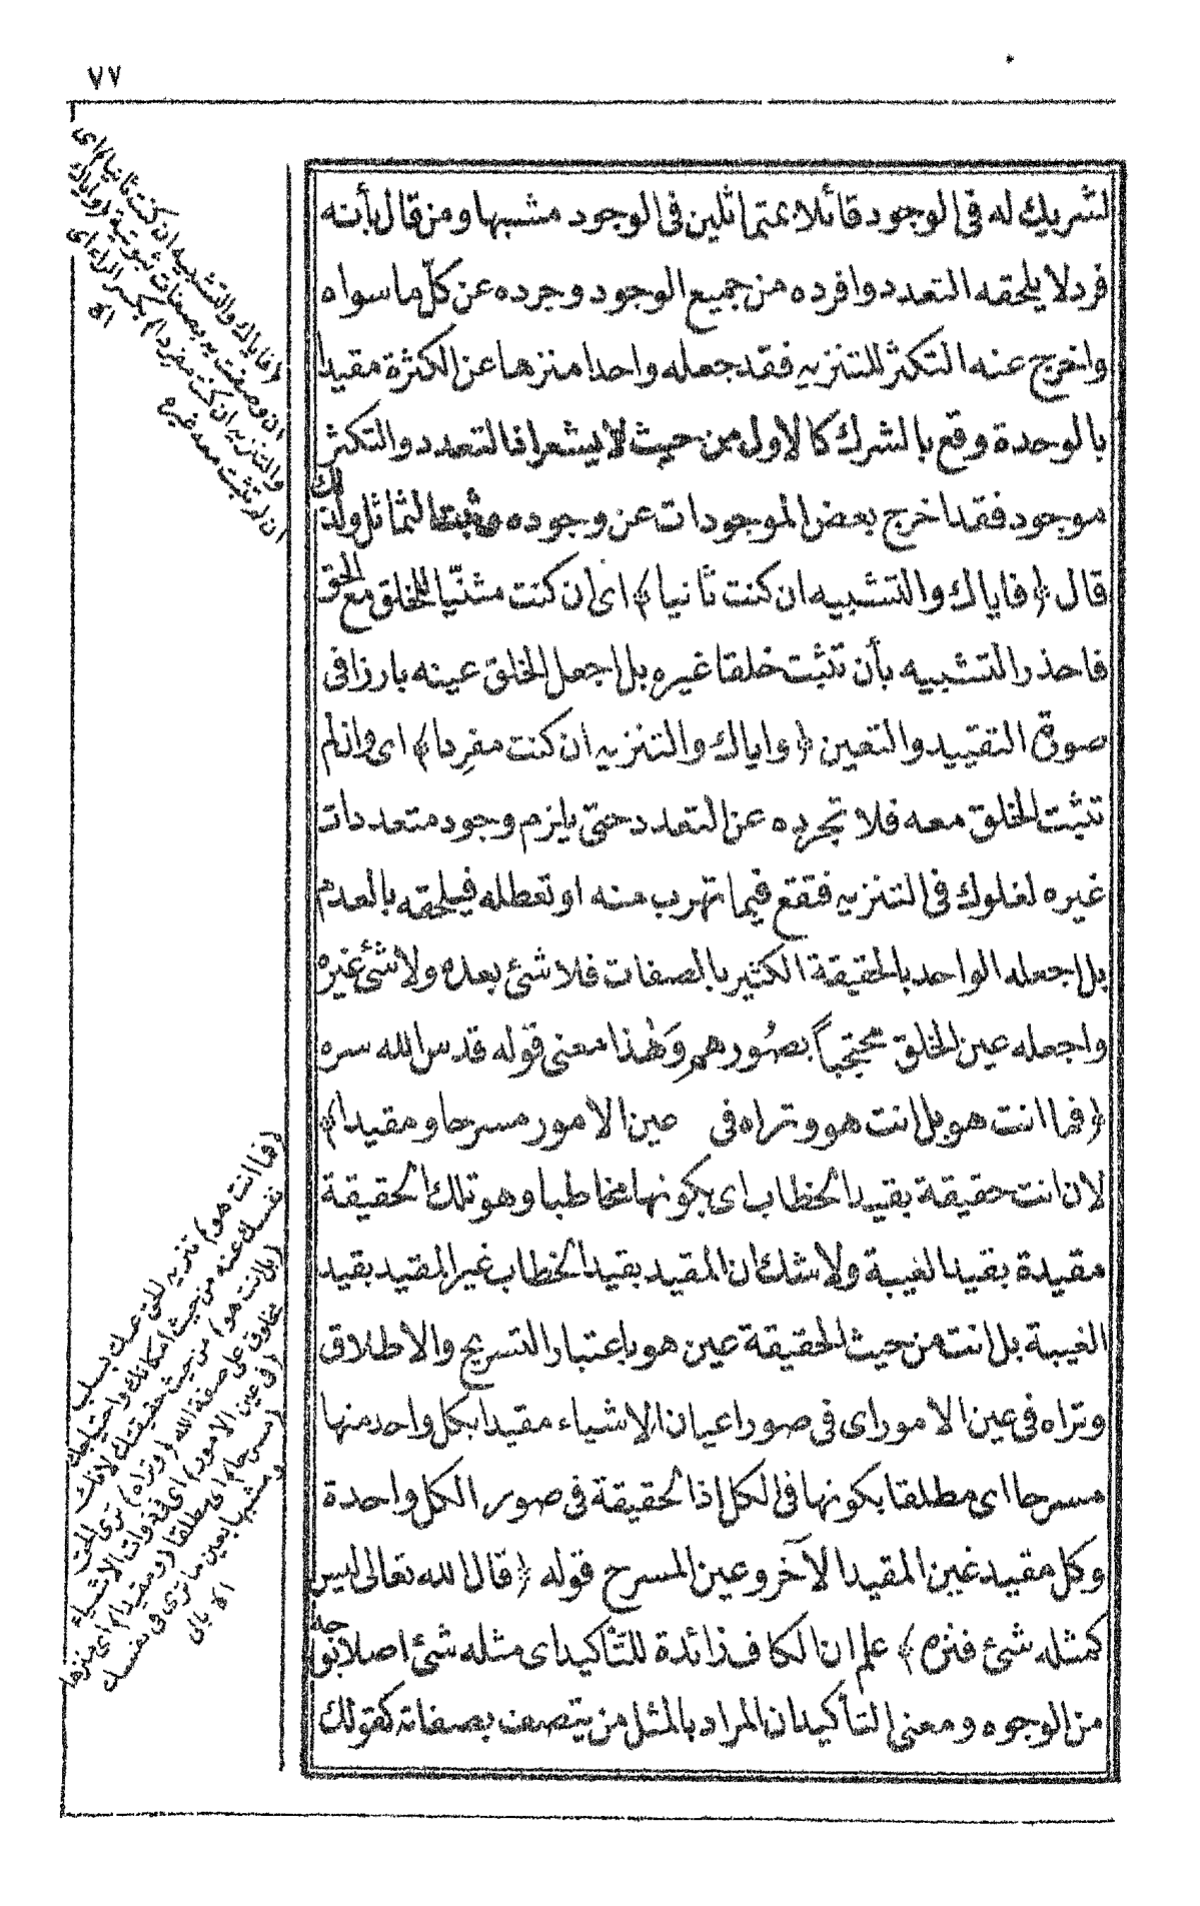 ٧٧
لشريك له فى الوجود قائلا بمتماثلين فى الوجود مشبها ومن قال بأنه
فرد لا يلحقه التعدد وافرده من جميع الوجود وجرده عن كلّ ما سواه
واخرج عنه التكثر للتنزيه فقد جعله واحدا منزها عن الكثرة مقيدا
بالوحدة وقع بالشرك كالاول من حيث لا يشعر اذ التعدد والتكثر
موجود فقد اخرج بعض الموجودات عن وجوده وثبت التماثل ولذلك
قال ﴿فاياك والتشبيه ان كنت ثانيا﴾ اى ان كنت مثنّيا للخلق مع الحق
فاحذر التشبيه بأن تثبت خلقا غيره بل اجعل الخلق عينه بارزا فى
صورة التقييد والتعين ﴿واياك والتنزيه ان كنت مفرِدا﴾ اى وان لم
تثبت الخلق معه فلا تجرده عن التعدد حتى يلزم وجود متعددات
غيره لغلوك فى التنزيه فتقع فيما تهرب منه او تعطله فيلحقه بالعدم
بل اجعله الواحد بالحقيقة الكثير بالصفات فلا شئ بعده ولا شئ غيره
واجعله عين الخلق محتجباً بصُورهم وَهٰذا معنى قوله قدس الله سره
﴿فما انت هو بل انت هو وتراه فى عين الامور مسرحا ومقيدا﴾
لان انت حقيقة بقيد الخطاب اى بكونها مخاطبا وهو تلك الحقيقة
مقيدة بقيد الغيبة ولا شك ان المقيد بقيد الخطاب غير المقيد بقيد
الغيبة بل انت من حيث الحقيقة عين هو باعتبار التسريح والاطلاق
وتراه فى عين الامور اى فى صور اعيان الاشياء مقيدا بكل واحد منها
مسرحا اى مطلقا بكونها فى الكل إذ الحقيقة فى صور الكل واحدة
وكل مقيد غين المقيد الآخر وعين المسرح قوله ﴿قال الله تعالى ليس
كمثله شئ فنزه﴾ علم ان الكاف زائدة للتأكيد اى مثله شئ اصلا بوجه
من الوجوه ومعنى التأكيد ان المراد بالمثل من يتصف بصفاته كقولك
(فاياك والتشبيه ان كنت ثانيا) اى
ان وصفت به بصفات ثبوتية (واياك
والتنزيه ان كنت مفردا) بكسر الراء اى
ان لم تثبت معه غيره اﻫ
(فما انت هو) تنزيه للحق عنك بسلب
نفسك عنه من حيث امكانك واحتياجك
(بل انت هو) من حيث حقيقتك لانك
مخلوق على صفة الله (وتراه) ترى الحق
(فى عين الامور) اى فى ذوات الاشياء
(مسرحا) اى مطلقا (ومقيدا) اى منزها
ومشبها بعين ما ترى فى نفسك
اﻫ بالى